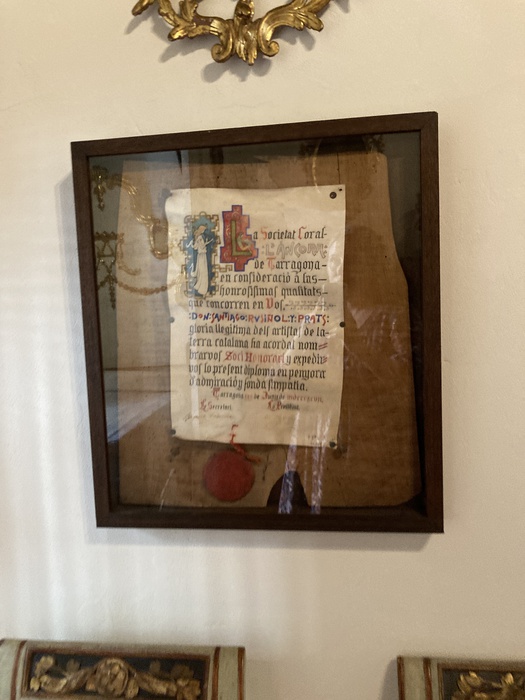 La Societat Coral-
:L'ANCORA:
de Tarragona-
en consideració à las-
honrosissimas qualitats-
que concorren en Vos,
:DON:SANTIAGO:RUSIÑOL:Y:PRATS:
gloria llegitima dels artistas de la-
terra catalana ha acordat nom=
brarvos Soci Honorari y expedir=
vos lo present diploma en penyora
d'admiració y fonda simpatia.
Tarragona de Juny de
Lo Secretari, Lo President,